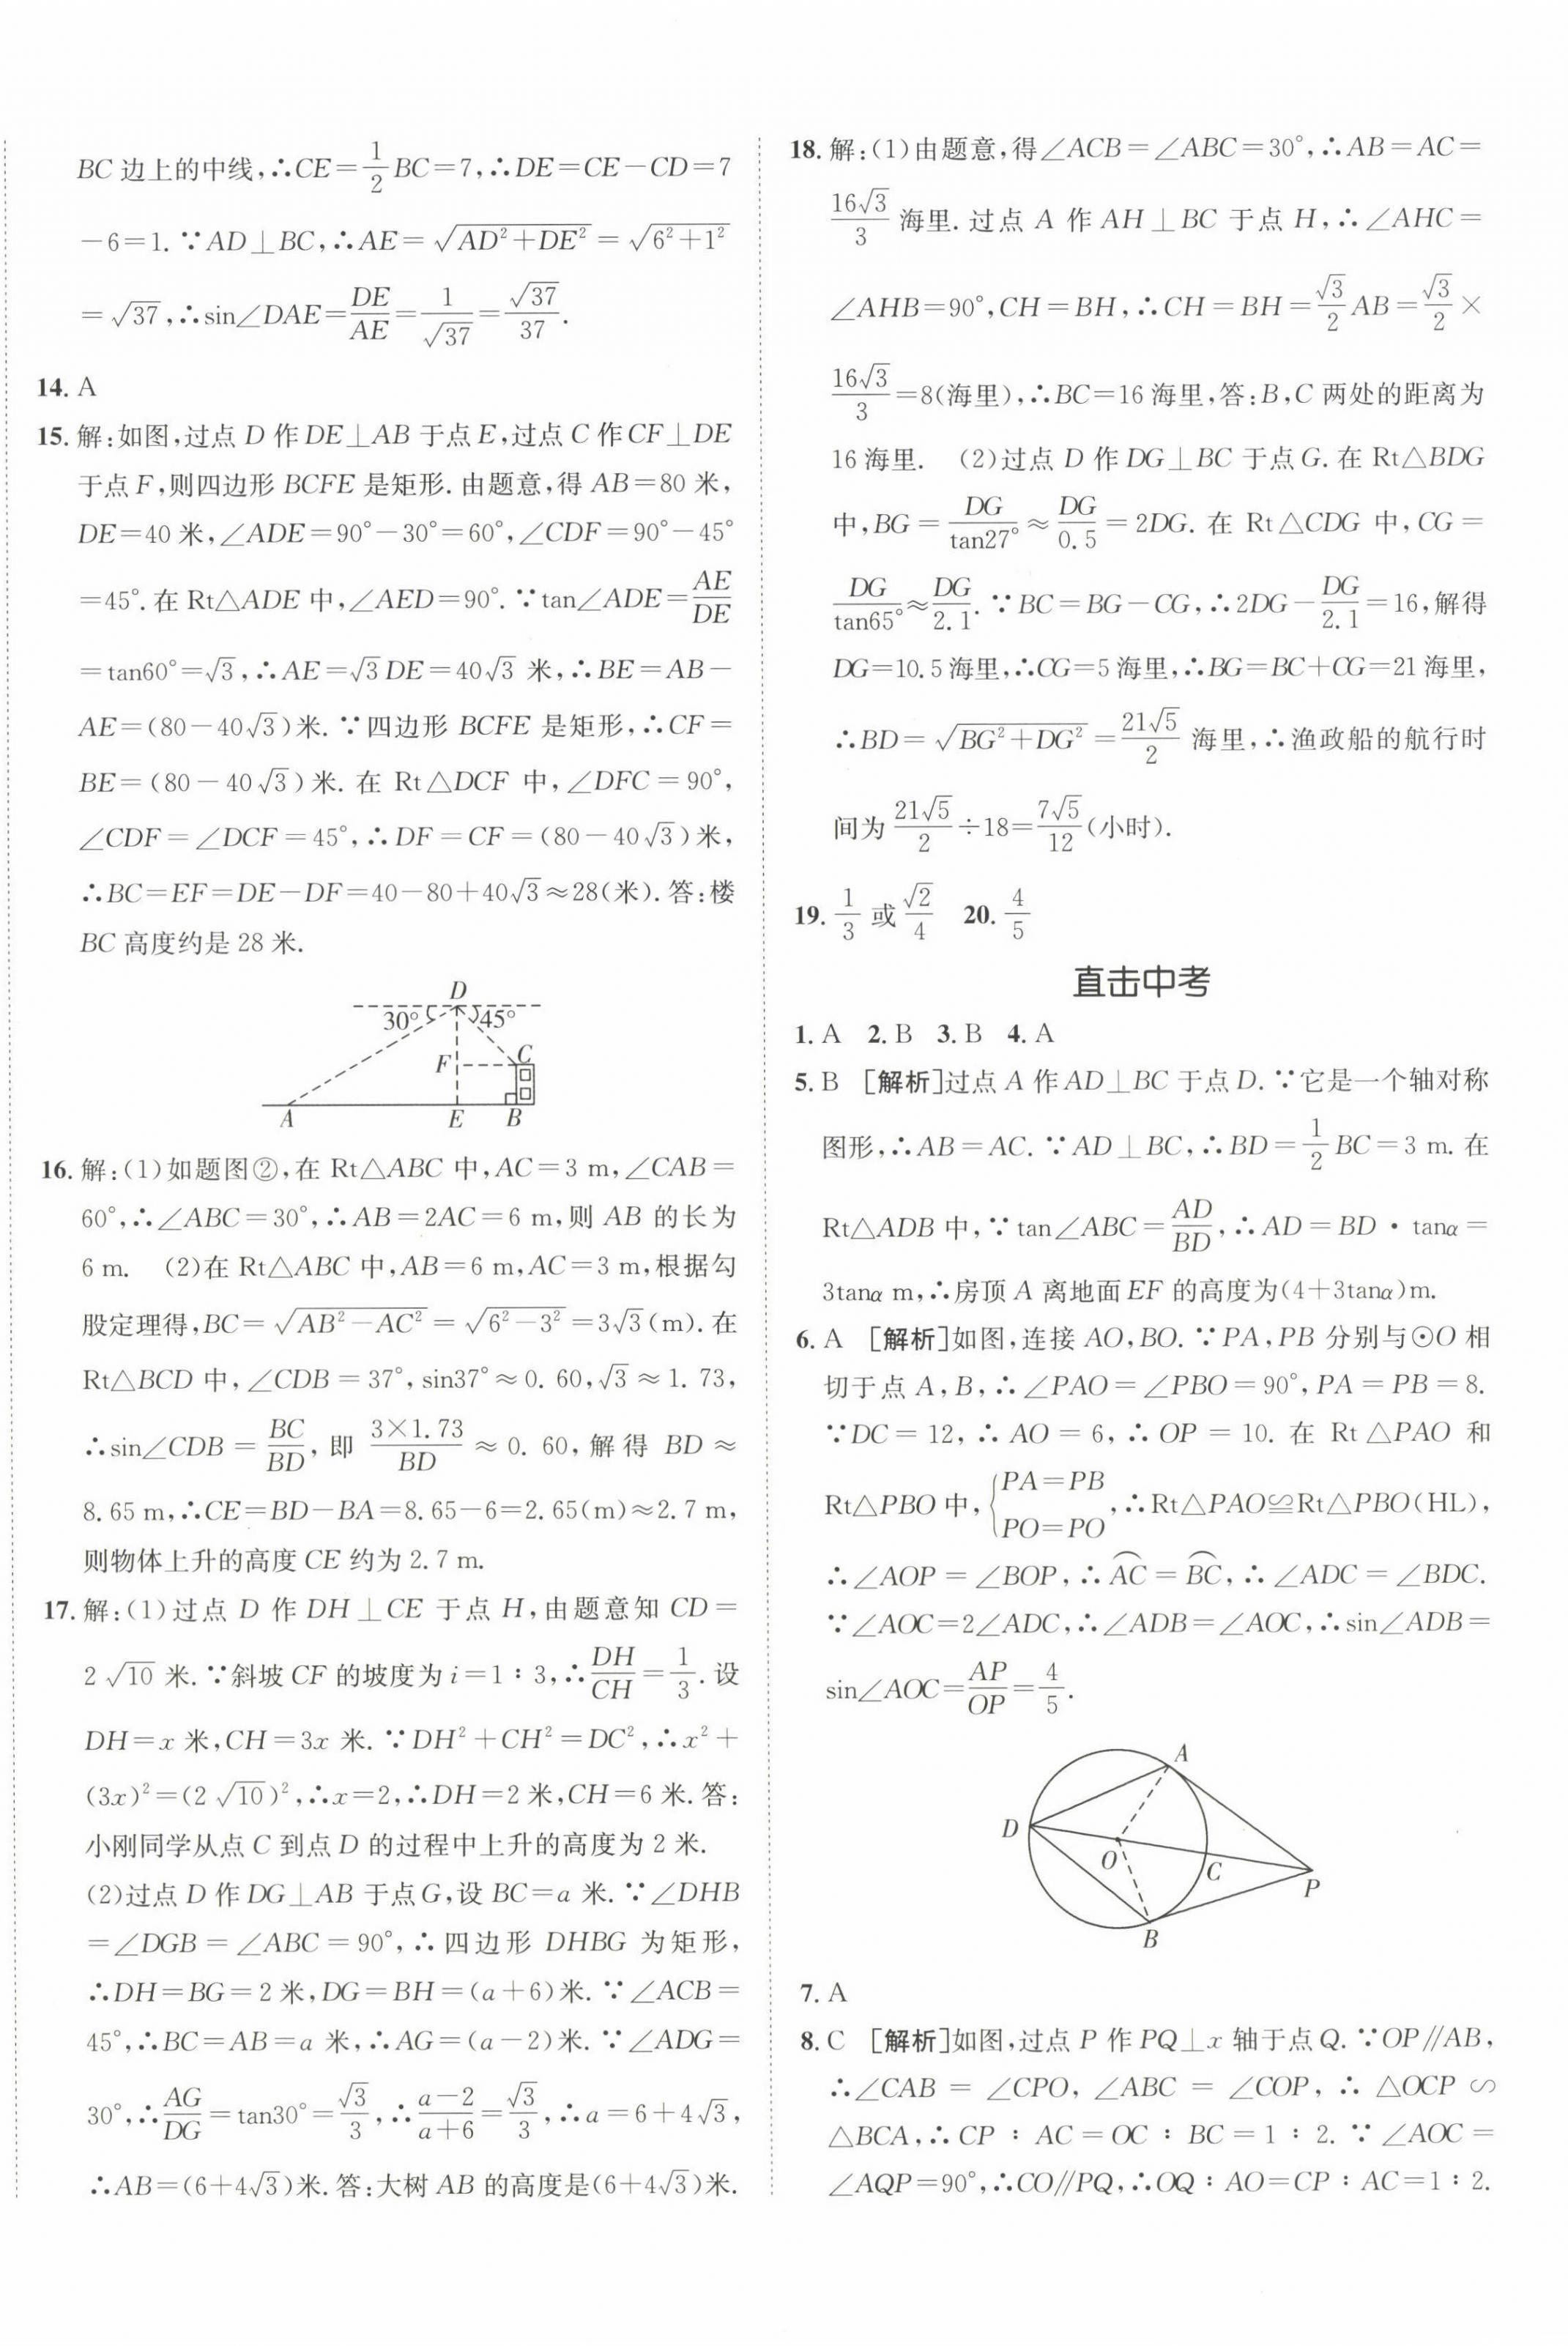 BC 边上的中线,∴CE=\frac{1}{2}BC=7,∴DE=CE-CD=7
-6=1. ∵AD⊥BC,∴AE=√(AD²+DE²)=√(6²+1²)
=√37,∴sin∠DAE=\frac{DE}{AE}=\frac{1}{√37}=\frac{√37}{37}.
14. A
15. 解:如图,过点 D 作 DE⊥AB 于点 E,过点 C 作 CF⊥DE
于点 F,则四边形 BCFE 是矩形. 由题意,得 AB=80 米,
DE=40 米,∠ADE=90°-30°=60°,∠CDF=90°-45°
=45°. 在 Rt△ADE 中,∠AED=90°. ∵tan∠ADE=\frac{AE}{DE}
=tan60°=√3,∴AE=√3DE=40√3 米,∴BE=AB-
AE=(80-40√3)米. ∵四边形 BCFE 是矩形,∴CF=
BE=(80-40√3)米. 在 Rt△DCF 中,∠DFC=90°,
∠CDF=∠DCF=45°,∴DF=CF=(80-40√3)米,
∴BC=EF=DE-DF=40-80+40√3≈28(米). 答:楼
BC 高度约是 28 米.
D
30° 45°
F C
A E B
16. 解:(1)如题图②,在 Rt△ABC 中,AC=3 m,∠CAB=
60°,∴∠ABC=30°,∴AB=2AC=6 m,则 AB 的长为
6 m. (2)在 Rt△ABC 中,AB=6 m,AC=3 m,根据勾
股定理得,BC=√(AB²-AC²)=√(6²-3²)=3√3(m). 在
Rt△BCD 中,∠CDB=37°,sin37°≈0.60,√3≈1.73,
∴sin∠CDB=\frac{BC}{BD},即 \frac{3×1.73}{BD}≈0.60,解得 BD≈
8.65 m,∴CE=BD-BA=8.65-6=2.65(m)≈2.7 m,
则物体上升的高度 CE 约为 2.7 m.
17. 解:(1)过点 D 作 DH⊥CE 于点 H,由题意知 CD=
2√10 米. ∵斜坡 CF 的坡度为 i=1∶3,∴\frac{DH}{CH}=\frac{1}{3}. 设
DH=x 米,CH=3x 米. ∵DH²+CH²=DC²,∴x²+
(3x)²=(2√10)²,∴x=2,∴DH=2 米,CH=6 米. 答:
小刚同学从点 C 到点 D 的过程中上升的高度为 2 米.
(2)过点 D 作 DG⊥AB 于点 G,设 BC=a 米. ∵∠DHB
=∠DGB=∠ABC=90°,∴四边形 DHBG 为矩形,
∴DH=BG=2 米,DG=BH=(a+6)米. ∵∠ACB=
45°,∴BC=AB=a 米,∴AG=(a-2)米. ∵∠ADG=
30°,∴\frac{AG}{DG}=tan30°=\frac{√3}{3},∴\frac{a-2}{a+6}=\frac{√3}{3},∴a=6+4√3,
∴AB=(6+4√3)米. 答:大树 AB 的高度是(6+4√3)米.
18. 解:(1)由题意,得∠ACB=∠ABC=30°,∴AB=AC=
\frac{16√3}{3} 海里. 过点 A 作 AH⊥BC 于点 H,∴∠AHC=
∠AHB=90°,CH=BH,∴CH=BH=\frac{√3}{2}AB=\frac{√3}{2}×
\frac{16√3}{3}=8(海里),∴BC=16 海里,答:B,C 两处的距离为
16 海里. (2)过点 D 作 DG⊥BC 于点 G. 在 Rt△BDG
中,BG=\frac{DG}{tan27°}≈\frac{DG}{0.5}=2DG. 在 Rt△CDG 中,CG=
\frac{DG}{tan65°}≈\frac{DG}{2.1}. ∵BC=BG-CG,∴2DG-\frac{DG}{2.1}=16,解得
DG=10.5 海里,∴CG=5 海里,∴BG=BC+CG=21 海里,
∴BD=√(BG²+DG²)=\frac{21√5}{2} 海里,∴渔政船的航行时
间为 \frac{21√5}{2}÷18=\frac{7√5}{12}(小时).
19. \frac{1}{3} 或 \frac{√2}{4} 20. \frac{4}{5}
直击中考
1. A 2. B 3. B 4. A
5. B [解析]过点 A 作 AD⊥BC 于点 D. ∵它是一个轴对称
图形,∴AB=AC. ∵AD⊥BC,∴BD=\frac{1}{2}BC=3 m. 在
Rt△ADB 中,∵tan∠ABC=\frac{AD}{BD},∴AD=BD·tanα=
3tanα m,∴房顶 A 离地面 EF 的高度为(4+3tanα)m.
6. A [解析]如图,连接 AO,BO. ∵PA,PB 分别与⊙O 相
切于点 A,B,∴∠PAO=∠PBO=90°,PA=PB=8.
∵DC=12,∴AO=6,∴OP=10. 在 Rt△PAO 和
Rt△PBO 中,{PA=PB PO=PO,∴Rt△PAO≌Rt△PBO(HL),
∴∠AOP=∠BOP,∴\overset{⌒}{AC}=\overset{⌒}{BC},∴∠ADC=∠BDC.
∵∠AOC=2∠ADC,∴∠ADB=∠AOC,∴sin∠ADB=
sin∠AOC=\frac{AP}{OP}=\frac{4}{5}.
A
D
O C
P
B
7. A
8. C [解析]如图,过点 P 作 PQ⊥x 轴于点 Q. ∵OP∥AB,
∴∠CAB=∠CPO,∠ABC=∠COP,∴△OCP∽
△BCA,∴CP∶AC=OC∶BC=1∶2. ∵∠AOC=
∠AQP=90°,∴CO∥PQ,∴OQ∶AO=CP∶AC=1∶2.